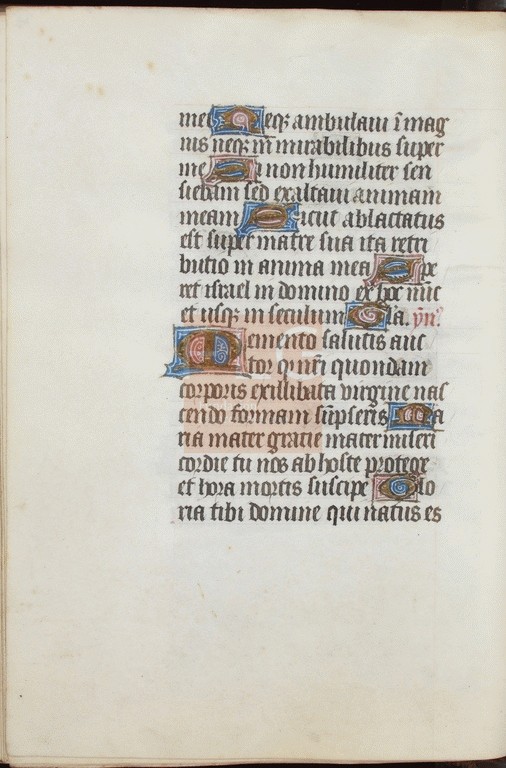 mei Neq; ambulaui ī mag
nis neq; in mirabilibus super
me Si non humiliter sen
tiebam sed exaltaui animam
meam Sicut ablactatus
est super matre sua ita retri
butio in anima mea Spe
ret israel in domino ex hoc nūc
et usq; in seculum Gła. ẏn̄s
Memento salutis auc
tor q nr̄i quondam
corporis exillibata virgine nas
cendo formam sūpseris Ma
ria mater gratie mater miseri
cordie tu nos ab hoste protege
et hora mortis suscipe Glo
ria tibi domine qui natus es